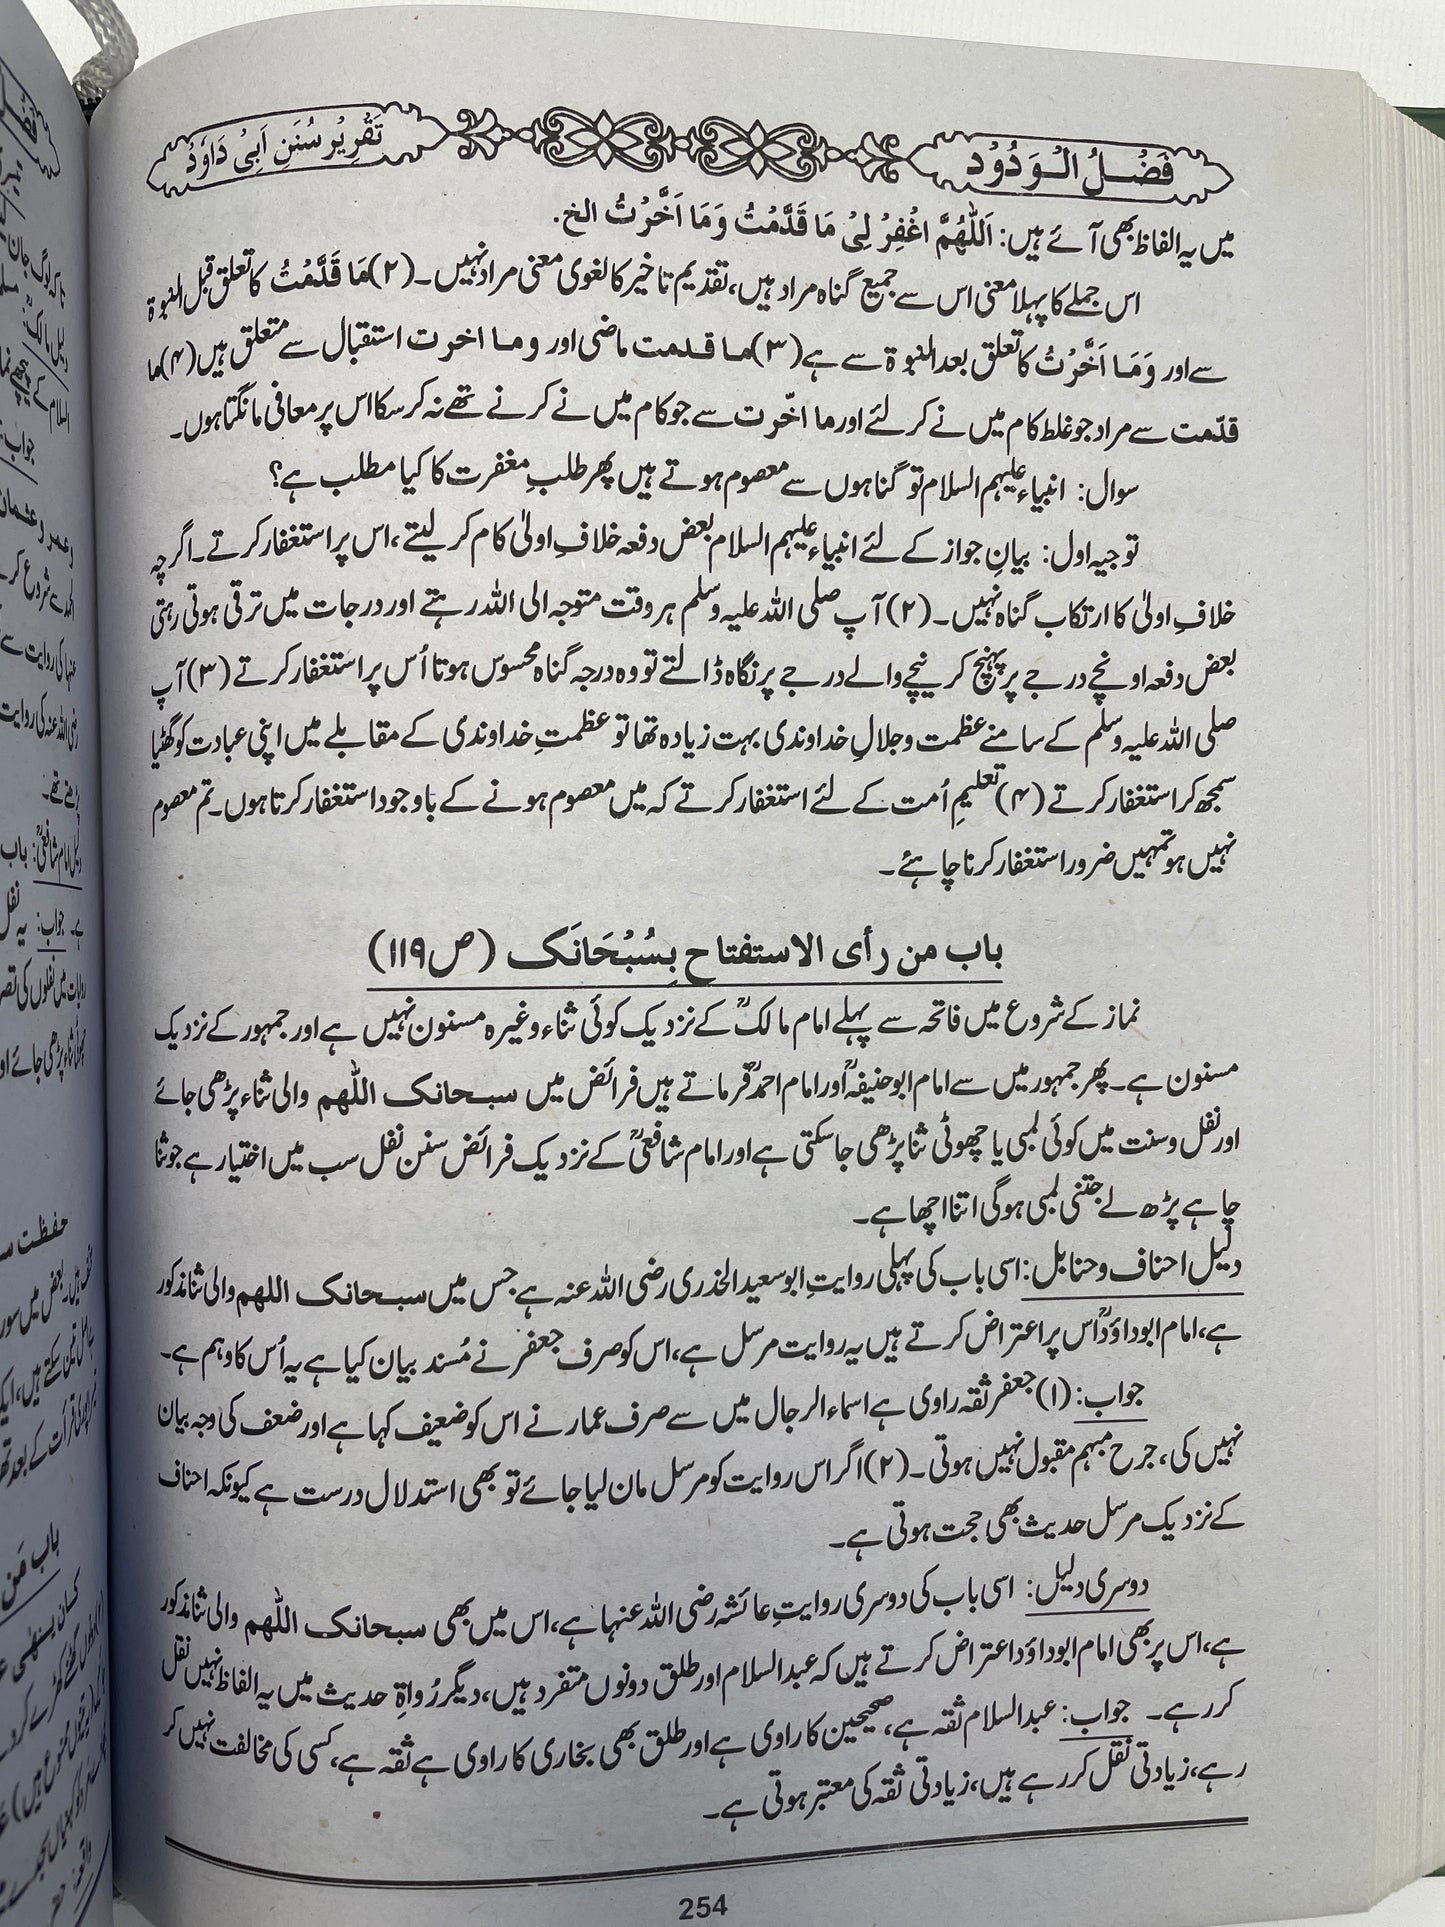 فَضْلُ الْوَدُوْد
تَقْرِیْر سُنَنِ اَبِیْ دَاوٗدْ
میں یہ الفاظ بھی آئے ہیں: اَللّٰهُمَّ اغْفِرْ لِیْ مَا قَدَّمْتُ وَمَا اَخَّرْتُ الخ.
اس جملے کا پہلا معنی اس سے جمیع گناہ مراد ہیں، تقدیم تاخیر کا لغوی معنی مراد نہیں۔ (۲) مَا قَدَّمْتُ کا تعلق قبل النبوۃ
سے اور وَمَا اَخَّرْتُ کا تعلق بعد النبوۃ سے ہے (۳) ما قدمت ماضی اور وما اخرت استقبال سے متعلق ہیں (۴) ما
قدّمت سے مراد جو غلط کام میں نے کر لئے اور ما اخّرت سے جو کام میں نے کرنے تھے نہ کر سکا اس پر معافی مانگتا ہوں۔
سوال: انبیاء علیہم السلام تو گناہوں سے معصوم ہوتے ہیں پھر طلبِ مغفرت کا کیا مطلب ہے؟
توجیہ اول: بیانِ جواز کے لئے انبیاء علیہم السلام بعض دفعہ خلافِ اولیٰ کام کر لیتے، اس پر استغفار کرتے۔ اگرچہ
خلافِ اولیٰ کا ارتکاب گناہ نہیں۔ (۲) آپ صلی اللہ علیہ وسلم ہر وقت متوجہ الی اللہ رہتے اور درجات میں ترقی ہوتی رہتی
بعض دفعہ اونچے درجے پر پہنچ کر نیچے والے درجے پر نگاہ ڈالتے تو وہ درجہ گناہ محسوس ہوتا اُس پر استغفار کرتے (۳) آپ
صلی اللہ علیہ وسلم کے سامنے عظمت و جلالِ خداوندی بہت زیادہ تھا تو عظمتِ خداوندی کے مقابلے میں اپنی عبادت کو گھٹیا
سمجھ کر استغفار کرتے (۴) تعلیمِ اُمت کے لئے استغفار کرتے کہ میں معصوم ہونے کے باوجود استغفار کرتا ہوں۔ تم معصوم
نہیں ہو تمہیں ضرور استغفار کرنا چاہئے۔
باب من رأى الاستفتاح بِسُبْحَانَک (ص۱۱۹)
نماز کے شروع میں فاتحہ سے پہلے امام مالکؒ کے نزدیک کوئی ثناء وغیرہ مسنون نہیں ہے اور جمہور کے نزدیک
مسنون ہے۔ پھر جمہور میں سے امام ابوحنیفہؒ اور امام احمدؒ فرماتے ہیں فرائض میں سبحانک اللّٰھم والی ثناء پڑھی جائے
اور نفل و سنت میں کوئی لمبی یا چھوٹی ثنا پڑھی جاسکتی ہے اور امام شافعیؒ کے نزدیک فرائض سنن نفل سب میں اختیار ہے جو ثنا
چاہے پڑھ لے جتنی لمبی ہوگی اتنا اچھا ہے۔
دلیل احناف و حنابل: اسی باب کی پہلی روایتِ ابوسعید الخدری رضی اللہ عنہ ہے جس میں سبحانک اللھم والی ثنا مذکور
ہے، امام ابوداؤدؒ اس پر اعتراض کرتے ہیں یہ روایت مرسل ہے، اس کو صرف جعفر نے مُسند بیان کیا ہے یہ اُس کا وہم ہے۔
جواب: (۱) جعفر ثقہ راوی ہے اسماء الرجال میں سے صرف عمار نے اس کو ضعیف کہا ہے اور ضعف کی وجہ بیان
نہیں کی، جرح مبہم مقبول نہیں ہوتی۔ (۲) اگر اس روایت کو مرسل مان لیا جائے تو بھی استدلال درست ہے کیونکہ احناف
کے نزدیک مرسل حدیث بھی حجت ہوتی ہے۔
دوسری دلیل: اسی باب کی دوسری روایتِ عائشہ رضی اللہ عنہا ہے، اس میں بھی سبحانک اللّٰھم والی ثنا مذکور
ہے، اس پر بھی امام ابوداؤد اعتراض کرتے ہیں کہ عبد السلام اور طلق دونوں متفرد ہیں، دیگر رُواۃِ حدیث میں یہ الفاظ نہیں نقل
کر رہے۔ جواب: عبد السلام ثقہ ہے، صحیحین کا راوی ہے اور طلق بھی بخاری کا راوی ہے ثقہ ہے، کسی کی مخالفت نہیں کر
رہے، زیادتی نقل کر رہے ہیں، زیادتی ثقہ کی معتبر ہوتی ہے۔
254